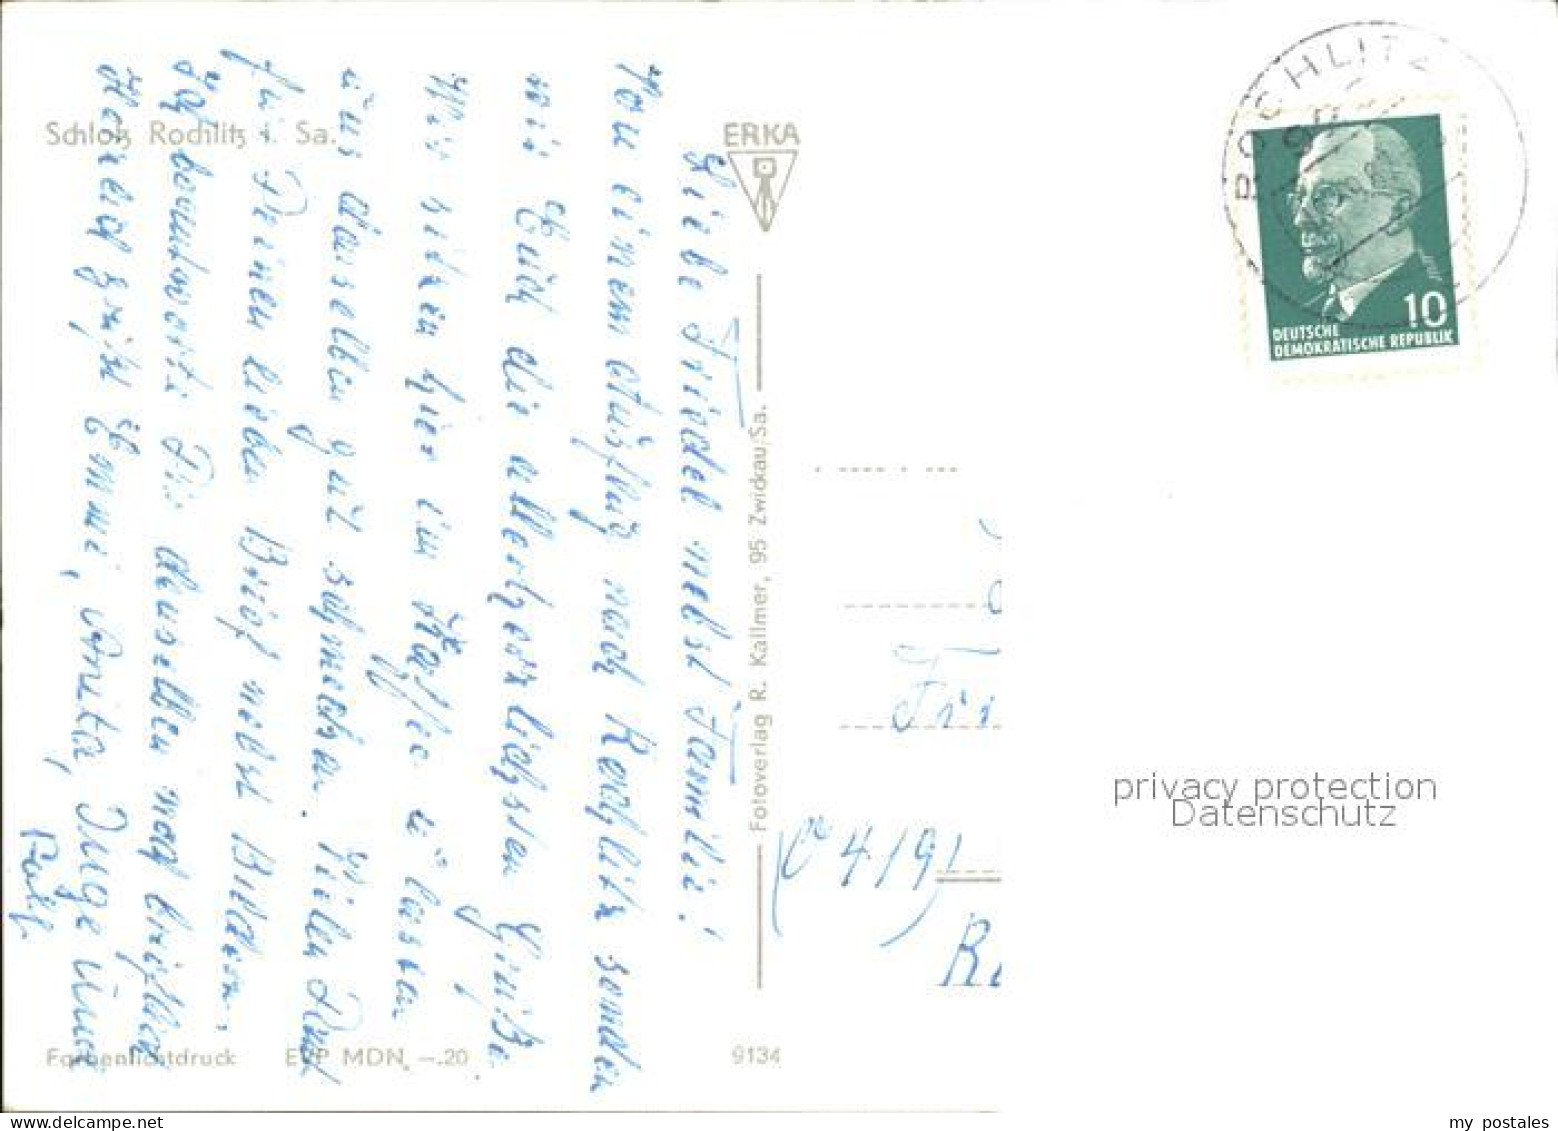 Schloß Rochlitz i. Sa.
ERKA
Liebe Friedel nebst Familie!
Von einem Ausflug nach Rochlitz senden
wir Euch die allerherzlichsten Grüße.
Wir sitzen hier im Kaffee u. lassen
uns denselben gut schmecken. Vielen Dank
für Deinen lieben Brief nebst Bildern,
Ich beantworte Dir denselben noch brieflich
Herzlich grüßt Emmi, Anita, Inge und
Fotoverlag R. Kallmer, 95 Zwickau/Sa.
Farbenlichtdruck EVP MDN –.20
9134
ROCHLITZ
10
DEUTSCHE
DEMOKRATISCHE REPUBLIK
privacy protection
Datenschutz
my postales